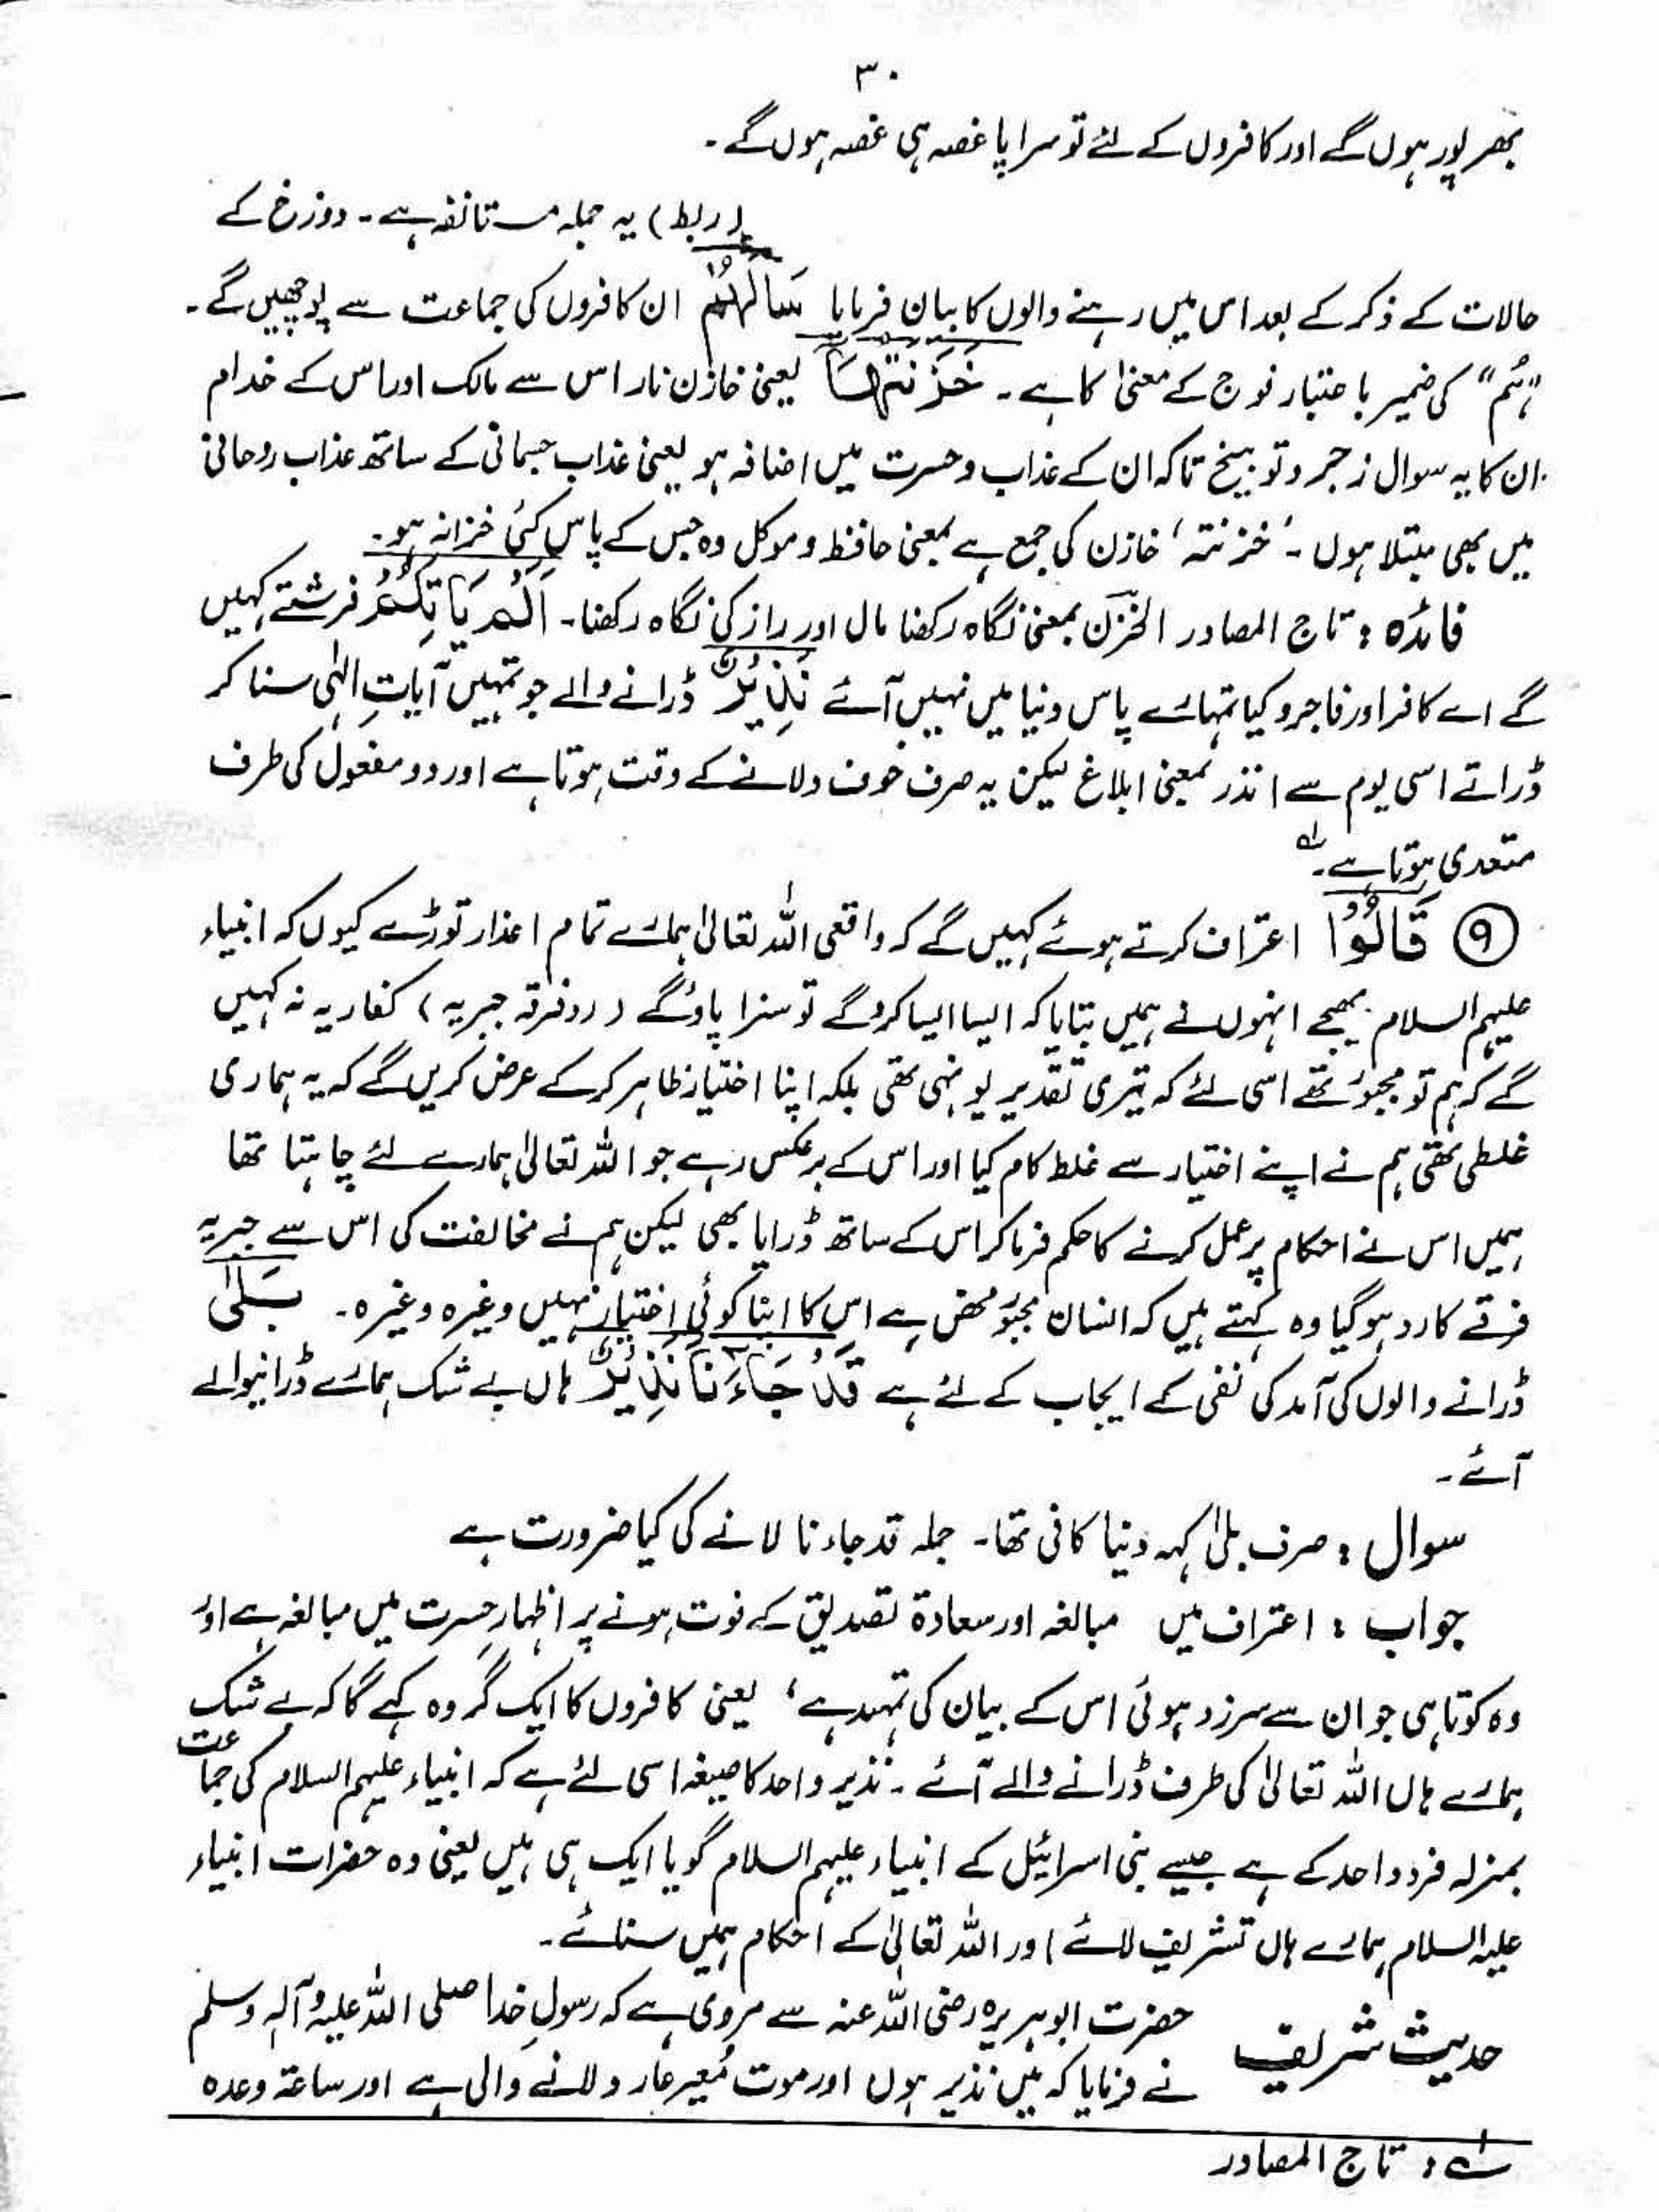 ۳۰
بھرپور ہوں گے اور کافروں کے لئے تو سراپا غصہ ہی غصہ ہوں گے۔
(ربط) یہ جملہ مستانفہ ہے۔ دوزخ کے
حالات کے ذکر کے بعد اس میں رہنے والوں کا بیان فرمایا سَاَلَہُمْ ان کافروں کی جماعت سے پوچھیں گے۔
"ہُم" کی ضمیر باعتبار فوج کے معنیٰ کا ہے۔ خَزَنَتُہَا یعنی خازن نار اس سے مالک اور اس کے خدام
ان کا یہ سوال زجر و توبیخ تاکہ ان کے عذاب و حسرت میں اضافہ ہو یعنی عذاب جسمانی کے ساتھ عذاب روحانی
میں بھی مبتلا ہوں۔ 'خزنتہ' خازن کی جمع ہے بمعنی حافظ و موکل وہ جس کے پاس کئی خزانہ ہو۔
فائدہ : تاج المصادر الخزن بمعنی نگاہ رکھنا مال اور راز کی نگاہ رکھنا۔ اَلَمْ یَاْتِکُمْ فرشتے کہیں
گے اے کافر اور فاجرو کیا تمہارے پاس دنیا میں نہیں آئے نَذِیْرٌ ڈرانے والے جو تمہیں آیاتِ الٰہی سنا کر
ڈراتے اسی یوم سے انذر بمعنی ابلاغ لیکن یہ صرف خوف دلانے کے وقت ہوتا ہے اور دو مفعول کی طرف
متعدی ہوتا ہے۔ لہ
۹ قَالُوْا اعتراف کرتے ہوئے کہیں گے کہ واقعی اللہ تعالیٰ ہمارے تمام اعذار توڑے کیوں کہ انبیاء
علیہم السلام بھیجے انہوں نے ہمیں بتایا کہ ایسا ایسا کروگے تو سزا پاؤگے (رد فرقہ جبریہ) کفار یہ نہ کہیں
گے کہ ہم تو مجبور تھے اسی لئے کہ تیری تقدیر یونہی تھی بلکہ اپنا اختیار ظاہر کرکے عرض کریں گے کہ یہ ہماری
غلطی تھی ہم نے اپنے اختیار سے غلط کام کیا اور اس کے برعکس رہے جو اللہ تعالیٰ ہمارے لئے چاہتا تھا
ہمیں اس نے احکام پر عمل کرنے کا حکم فرما کر اس کے ساتھ ڈرایا بھی لیکن ہم نے مخالفت کی اس سے جبریہ
فرقے کا رد ہوگیا وہ کہتے ہیں کہ انسان مجبور محض ہے اس کا اپنا کوئی اختیار نہیں وغیرہ وغیرہ۔ بَلٰی
ڈرانے والوں کی آمد کی نفی کے ایجاب کے لئے ہے قَدْ جَآءَنَا نَذِیْرٌ ہاں بے شک ہمارے ڈرانیوالے
آئے۔
سوال : صرف بلیٰ کہہ دینا کافی تھا۔ جملہ قد جاءنا لانے کی کیا ضرورت ہے
جواب : اعتراف میں مبالغہ اور سعادۃ تصدیق کے فوت ہونے پر اظہارِ حسرت میں مبالغہ ہے اور
وہ کوتاہی جو ان سے سرزد ہوئی اس کے بیان کی تمہید ہے، یعنی کافروں کا ایک گروہ کہے گا کہ بے شک
ہمارے ہاں اللہ تعالیٰ کی طرف ڈرانے والے آئے۔ نذیر واحد کا صیغہ اسی لئے ہے کہ انبیاء علیہم السلام کی جماعت
بمنزلہ فرد واحد کے ہے جیسے بنی اسرائیل کے انبیاء علیہم السلام گویا ایک ہی ہیں یعنی وہ حضرات انبیاء
علیہ السلام ہمارے ہاں تشریف لائے اور اللہ تعالیٰ کے احکام ہمیں سنائے۔
حدیث شریف حضرت ابوہریرہ رضی اللہ عنہ سے مروی ہے کہ رسولِ خدا صلی اللہ علیہ وآلہ وسلم
نے فرمایا کہ میں نذیر ہوں اور موت مُعیر عار دلانے والی ہے اور ساعۃ وعدہ
لہ : تاج المصادر